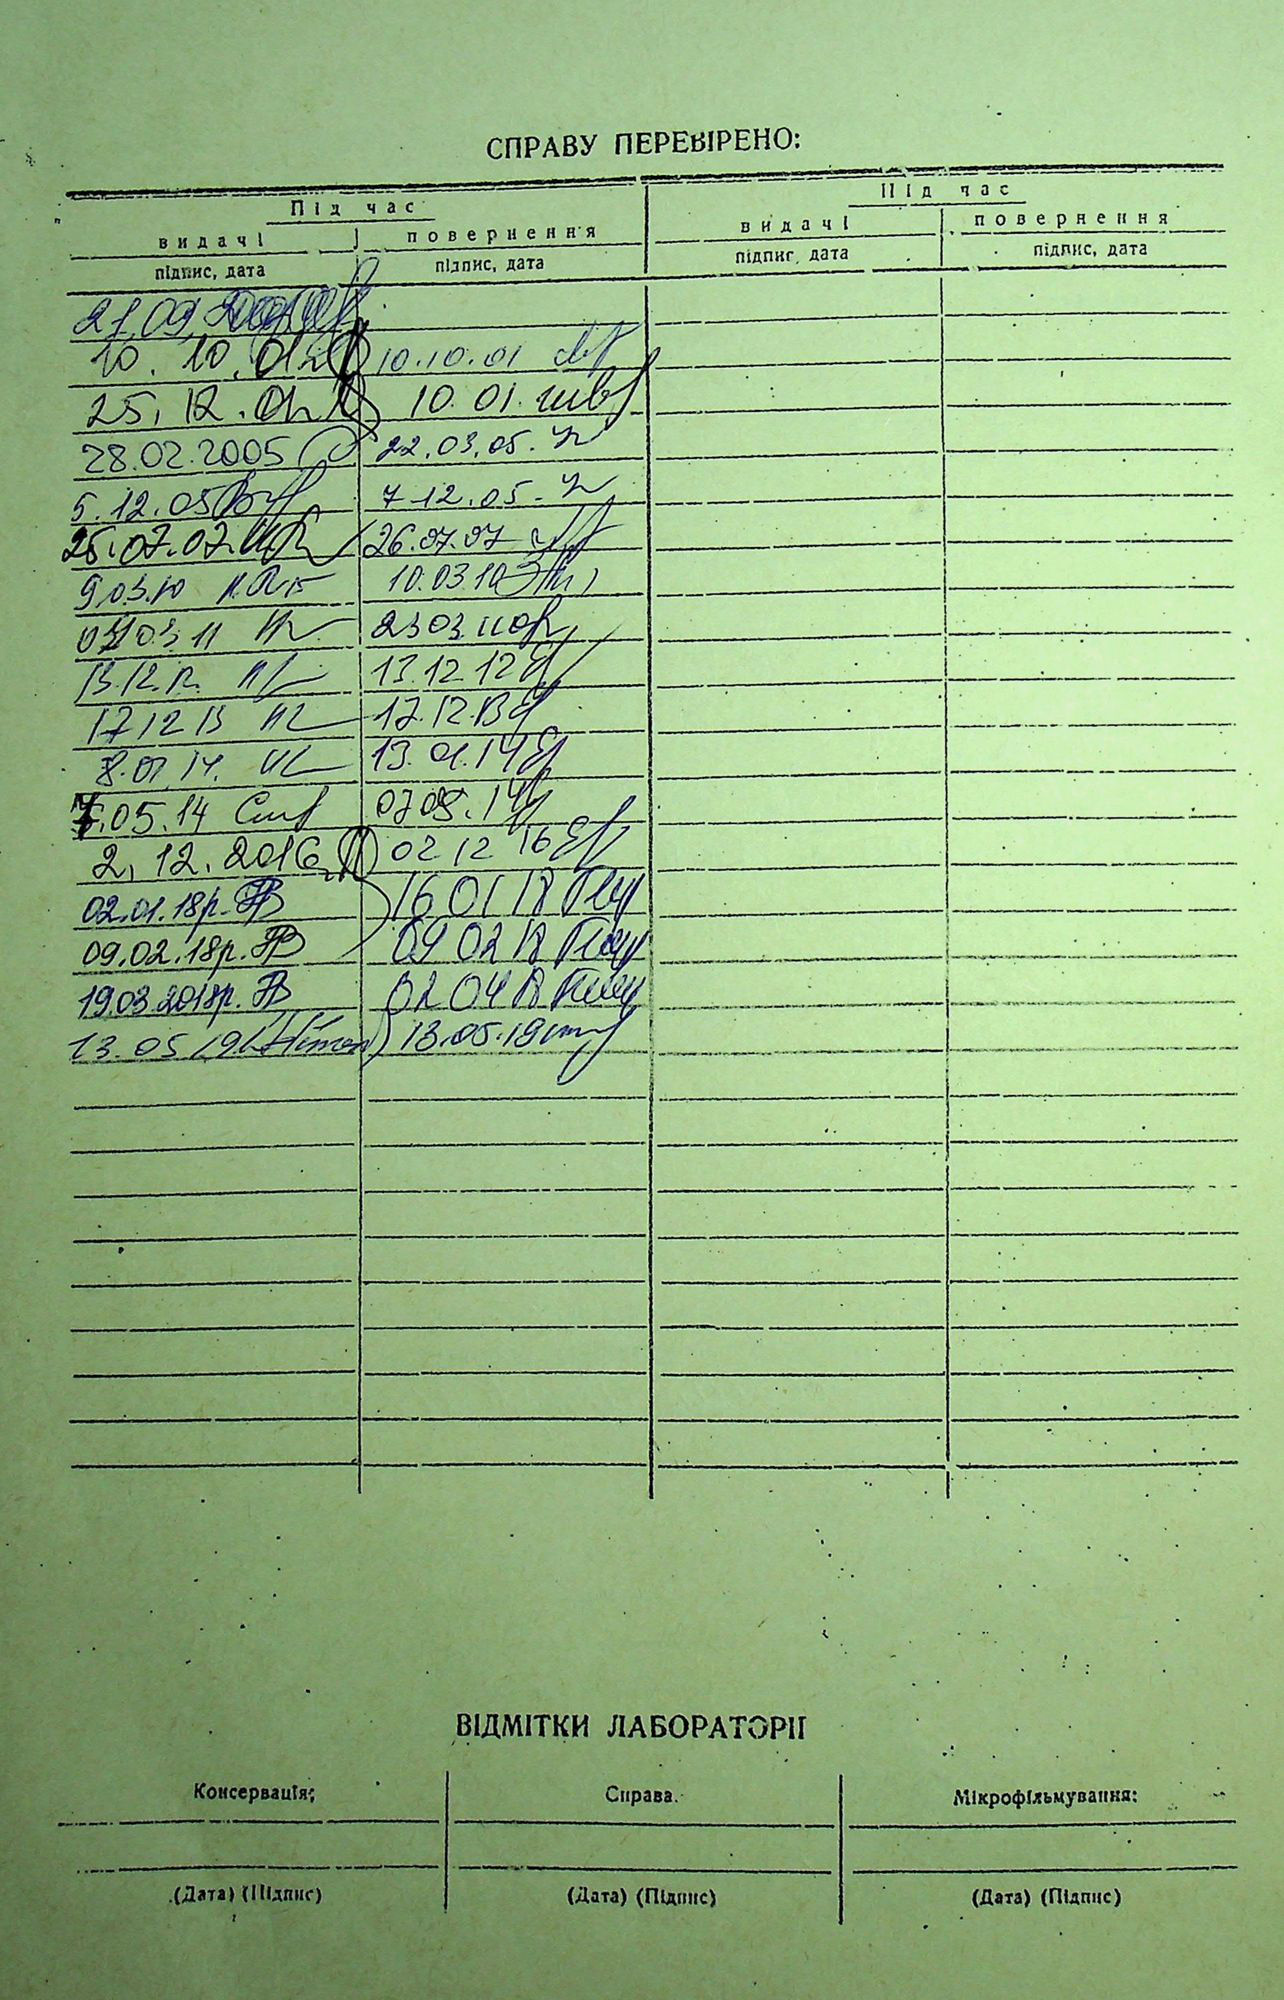 СПРАВУ ПЕРЕВІРЕНО:
Під час Під час
видачі повернення видачі повернення
підпис, дата підпис, дата підпис, дата підпис, дата
21.09.
10.10.01 10.10.01
25.12.01 10.01.
28.02.2005 22.03.05.
5.12.05 7 12.05.
25.07.07. 26.07.07
9.03.10 10.03.10
03.11 23 03.11
13.12.12. 13.12.12
17 12 13 17.12.13
8.01.14. 13.01.14
7.05.14 07 05.14
2.12.2016 02 12 16
02.01.18р. 16 01 18
09.02.18р. 09 02 18
19.03.2018р. 02 04 18
13.05.19 13.05.19
ВІДМІТКИ ЛАБОРАТОРІЇ
Консервація: Справа. Мікрофільмування:
(Дата) (Підпис) (Дата) (Підпис) (Дата) (Підпис)